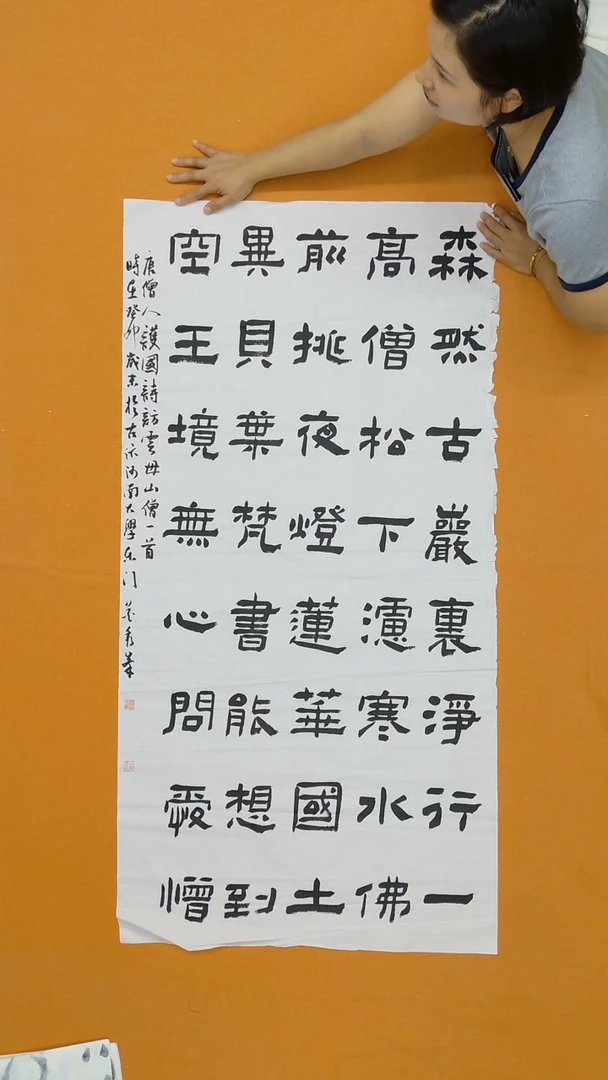 森然古巖裏淨行一
高僧松下濾寒水佛
前挑夜燈蓮華國土
異貝葉梵書能想到
空王境無心問愛憎
唐僧人護國詩訪雲母山僧一首
時在癸卯歲末於古汴河南大學東门